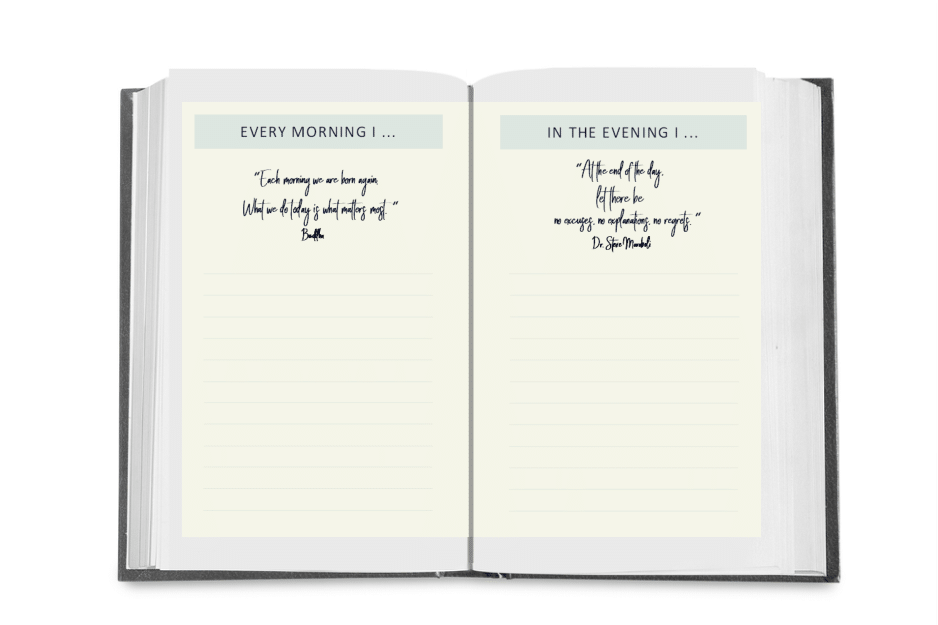 EVERY MORNING I ...
"Each morning we are born again.
What we do today is what matters most. "
Buddha
IN THE EVENING I ...
"At the end of the day,
let there be
no excuses, no explanations, no regrets. "
Dr. Steve Maraboli